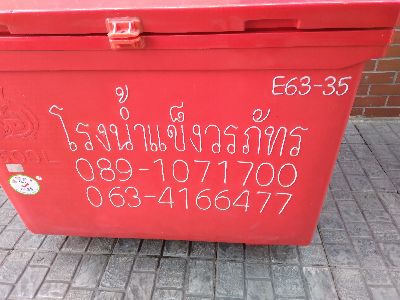 E63-35
โรงน้ำแข็งวรภัทร
089-1071700
063-4166477